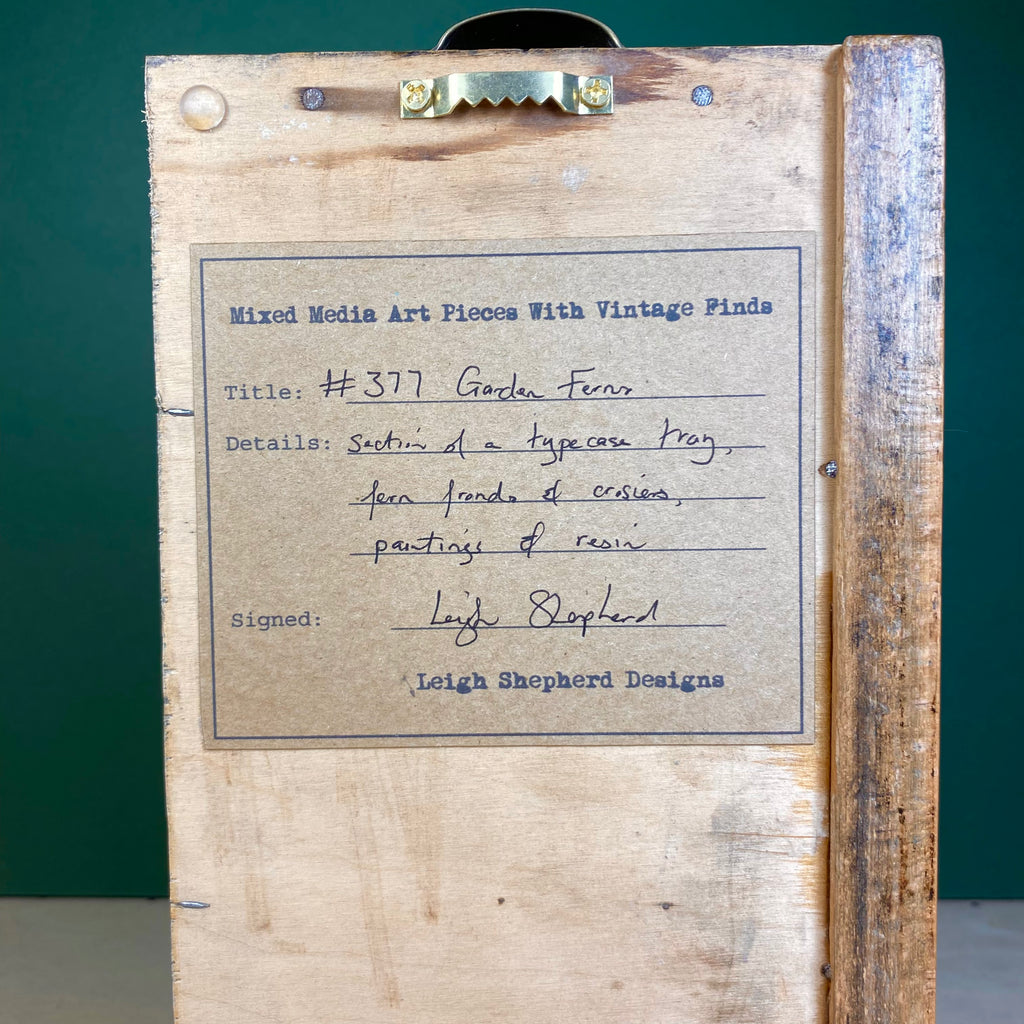 Mixed Media Art Pieces With Vintage Finds
Title: #377 Garden Ferns
Details: Section of a typecase tray,
fern fronds & crosiers,
paintings & resin
Signed: Leigh Shepherd
Leigh Shepherd Designs